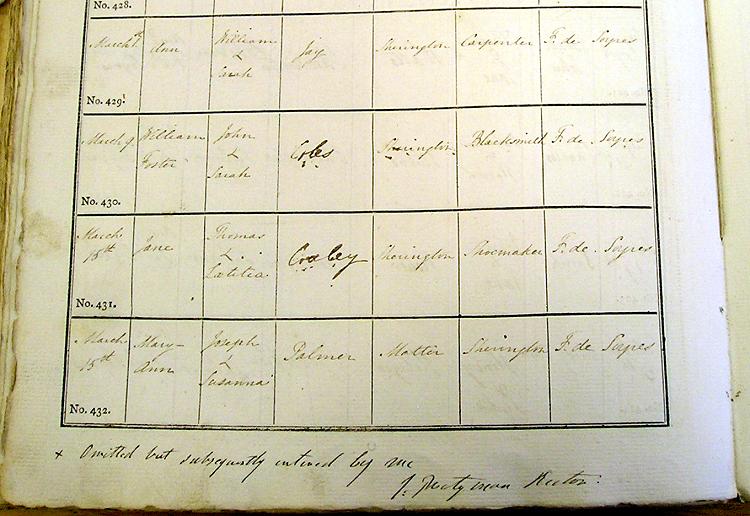 No. 428.
March Ann William & Sarah Jay Sherington Carpenter F. de Soyres
No. 429.
March 9. William Foster John & Sarah Coles Sherington Blacksmith F. de Soyres
No. 430.
March 15th Jane Thomas & Latitia Croxley Sherington Shoemaker F. de Soyres
No. 431.
March 15th Mary-Ann Joseph & Susanna Palmer Matter Sherington F. de Soyres
No. 432.
+ Omitted but subsequently entered by me
J. Rector.